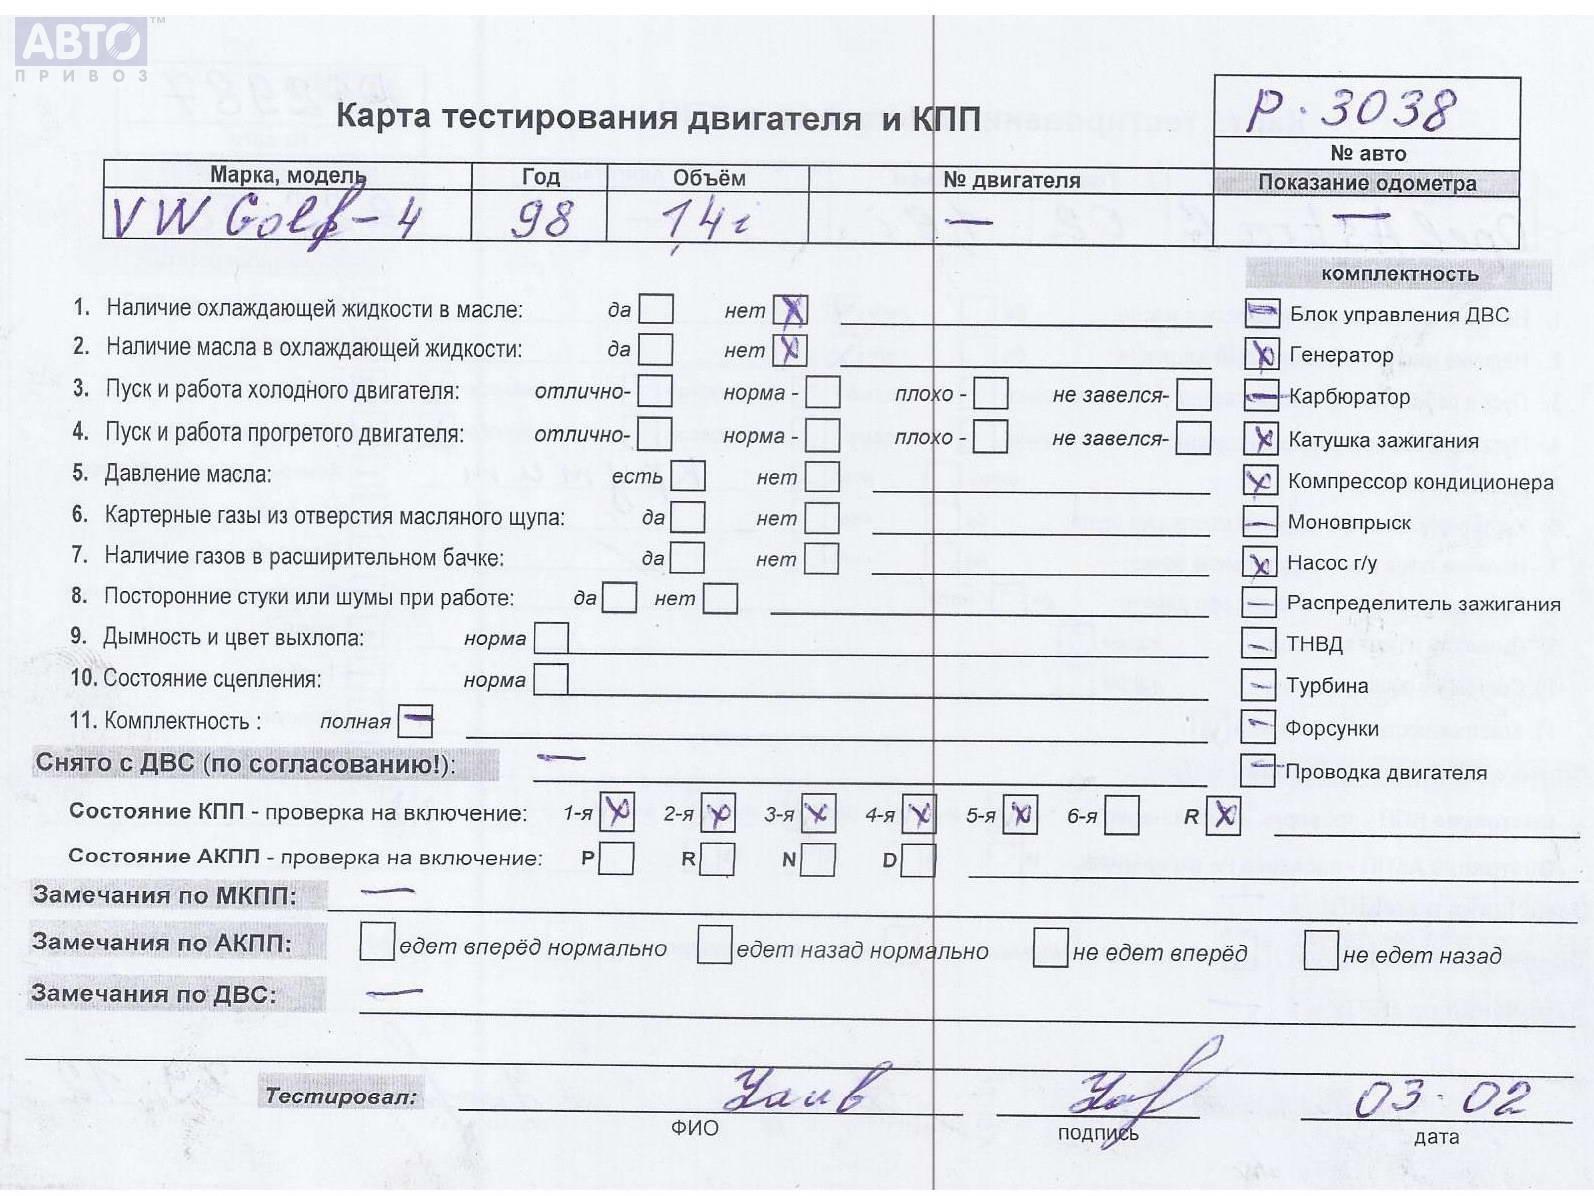 АВТО™
ПРИВОЗ
P. 3038
Карта тестирования двигателя и КПП
№ авто
Марка, модель Год Объём № двигателя Показание одометра
VW Golf-4 98 1,4i — —
комплектность
1. Наличие охлаждающей жидкости в масле: да нет X — Блок управления ДВС
2. Наличие масла в охлаждающей жидкости: да нет X X Генератор
3. Пуск и работа холодного двигателя: отлично- норма - плохо - не завелся- — Карбюратор
4. Пуск и работа прогретого двигателя: отлично- норма - плохо - не завелся- X Катушка зажигания
5. Давление масла: есть нет X Компрессор кондиционера
6. Картерные газы из отверстия масляного щупа: да нет — Моновпрыск
7. Наличие газов в расширительном бачке: да нет X Насос г/у
8. Посторонние стуки или шумы при работе: да нет — Распределитель зажигания
9. Дымность и цвет выхлопа: норма — ТНВД
10. Состояние сцепления: норма — Турбина
11. Комплектность : полная — — Форсунки
Снято с ДВС (по согласованию!): — — Проводка двигателя
Состояние КПП - проверка на включение: 1-я X 2-я X 3-я X 4-я X 5-я X 6-я R X
Состояние АКПП - проверка на включение: P R N D
Замечания по МКПП: —
Замечания по АКПП: едет вперёд нормально едет назад нормально не едет вперёд не едет назад
Замечания по ДВС: —
Тестировал: 03.02
ФИО подпись дата